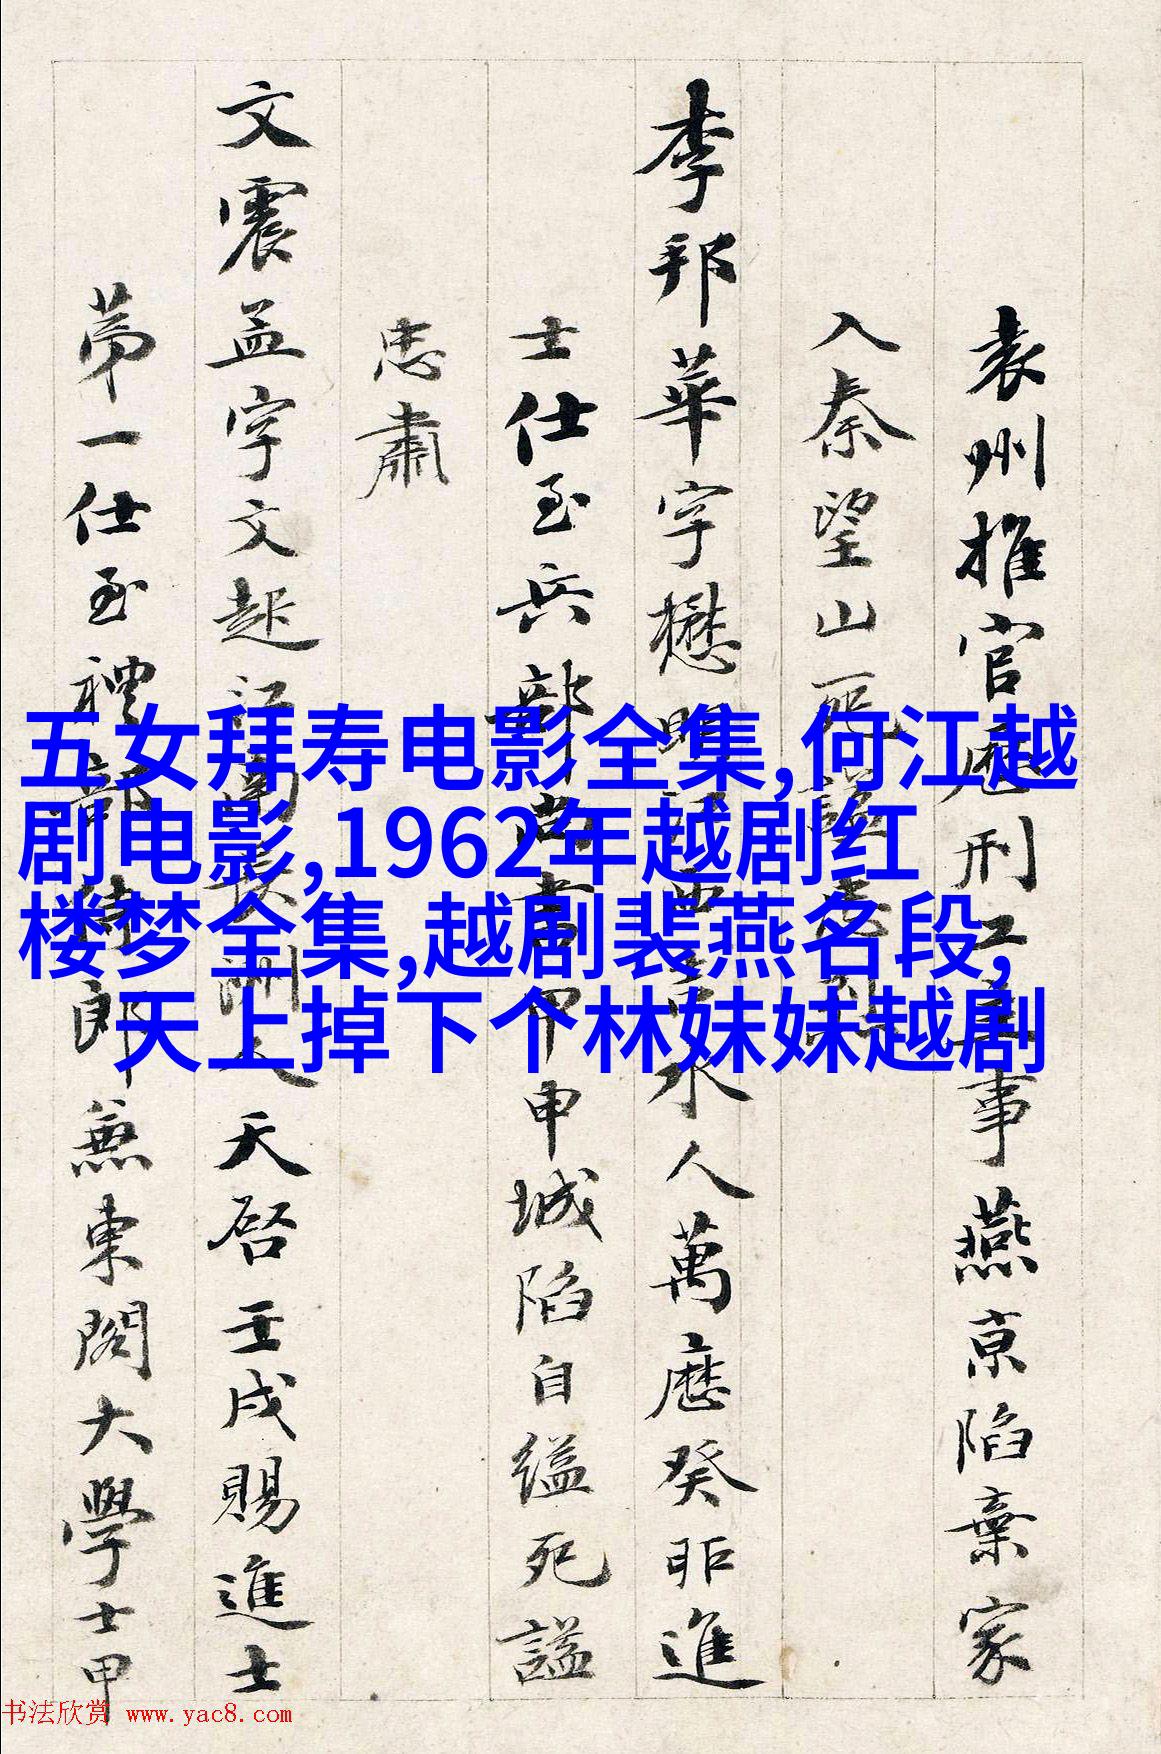 袁州推官歷刑工主事燕京陷棄家
入秦望山死謚
李邦華字懋明江西吉水人萬曆癸卯進
士仕至兵部尚書甲申城陷自縊死謚
忠肅
文震孟字文起江南長洲人天啓壬戌賜進士
第一仕至禮部侍郎兼東閣大學士甲
五女拜寿电影全集,何江越
剧电影,1962年越剧红
楼梦全集,越剧裴燕名段,
天上掉下个林妹妹越剧
书法欣赏 www.yac8.com